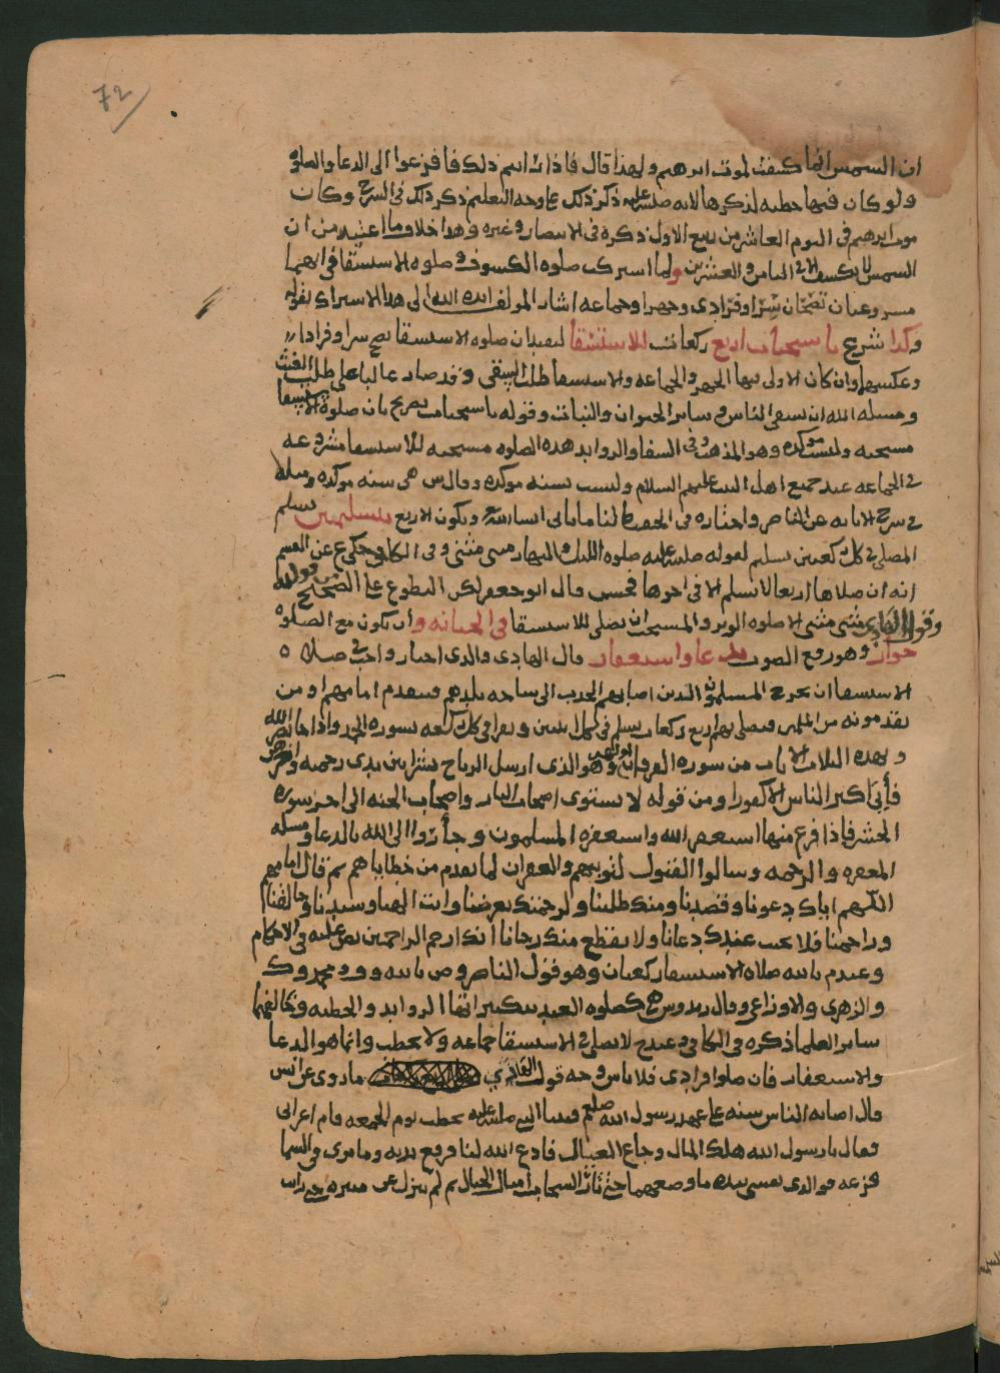 72
ان الشمس انما كسفت لموت ابرهيم ولهذا قال فاذا رايتم ذلك فافزعوا الى الدعا والصلوه
ولو كان فيها خطبه لذكرها لانه صلى الله عليه ذكر ذلك على وجه التعليم ذكر ذلك في الشرح وكان
موت ابرهيم في اليوم العاشر من ربيع الاول ذكره في الانتصار وغيره وهذا خلاف ما اعتيد من ان
الشمس لا تكسف الا في الثامن والعشرين ولما اشتركت صلوه الكسوف وصلوه الاستسقا في انهما
مشروعتان تصحان سرا وفرادى وجهرا وجماعه اشار المولف ايده الله الى هذا الاشتراك بقوله
وكذا شرع باستحباب اربع ركعات للاستسقا ليفيد ان صلوه الاستسقا تصح سرا وفرادا
وعكسهما وان كان الاولى فيها الجهر والجماعه والاستسقا طلب السقى وقد صار غالبا على طلب الغيث
ومسئله الله ان يسقى الناس وسائر الحيوان والنبات وقوله باستحباب تصريح بان صلوه الاستسقا
مستحبه وليست موكده وهو المذهب وفي الشفا والزوايد هذه الصلوه مستحبه للاستسقا مشروعه
في الجماعه عند جميع اهل البيت عليهم السلام وليست بسنه موكده وقال س هي سنه موكده ومثله
في شرح الابانه عن الناصر واختاره في الحفيظ لنا ما ياتى ان شا الله وتكون الاربع بتسليمتين يسلم
المصلى في كل ركعتين تسليم لقوله صلى الله عليه صلوه الليل والنهار مثنى مثنى وفي الكافي حكي عن القسم
انه ان صلاها اربعا لا يسلم الا في اخرها فحسب قال ابو جعفر لكن التطوع على الصحيح من قوله
وقول الهادى مثنى مثنى الا صلوه الوتر والمستحب ان يصلى للاستسقا في الجبانه وان يكون مع الصلوه
جوار وهو رفع الصوت بدعا واستغفار قال الهادى والذى اختار واحب في صلاه
الاستسقا ان يخرج المسلمون الذين اصابهم الجدب الى ساحه بلدهم فيتقدم امامهم او من
يقدمونه من المسلمين فيصلى بهم اربع ركعات يسلم في كل اثنتين ويقرا في كل ركعه بسوره الحمد واذا جا نصر الله
وبهذه الثلاث الايات من سوره الفرقان وهو الذى ارسل الرياح بشرا بين يدى رحمته
فابى اكثر الناس الا كفورا ومن قوله لا يستوى اصحاب النار واصحاب الجنه الى اخر سوره
الحشر فاذا فرغ منها استغفر الله واستغفره المسلمون وجأروا الى الله بالدعا ومسئله
المغفره والرحمه وسالوا القبول لتوبتهم والغفران لما تقدم من خطاياهم ثم قال امامهم
اللهم اياك دعونا وقصدنا ومنك طلبنا ولرحمتك تعرضنا وانت الهنا وسيدنا وخالقنا
وراحمنا فلا تخيب عندك دعانا ولا تقطع منك رجانا انك ارحم الراحمين نص عليه في الاحكام
وعند م بالله صلاه الاستسقا ركعتان وهو قول الناصر وص بالله و ف ومحمد وك
والزهرى والاوزاعى وقال زيد وس هي كصلوه العيد بتكبيراتها الزوايد والخطبه ويخالفهما
سائر العلما ذكره في الكافي وعند ح لا يصلى في الاستسقا جماعه ولا يخطب وانما هو الدعا
والاستغفار فان صلوا فرادى فلا باس وجه قول الهادى ما روى عن انس
قال اصابه الناس سنه على عهد رسول الله صلعم فبينا النبي صلى الله عليه يخطب يوم الجمعه قام اعرابى
فقال يا رسول الله هلك المال وجاع العيال فادع الله لنا فرفع يديه وما نرى في السما
قزعه فوالذى نفسى بيده ما وضعهما حتى ثار السحاب امثال الجبال ثم لم ينزل عن منبره حتى رايت